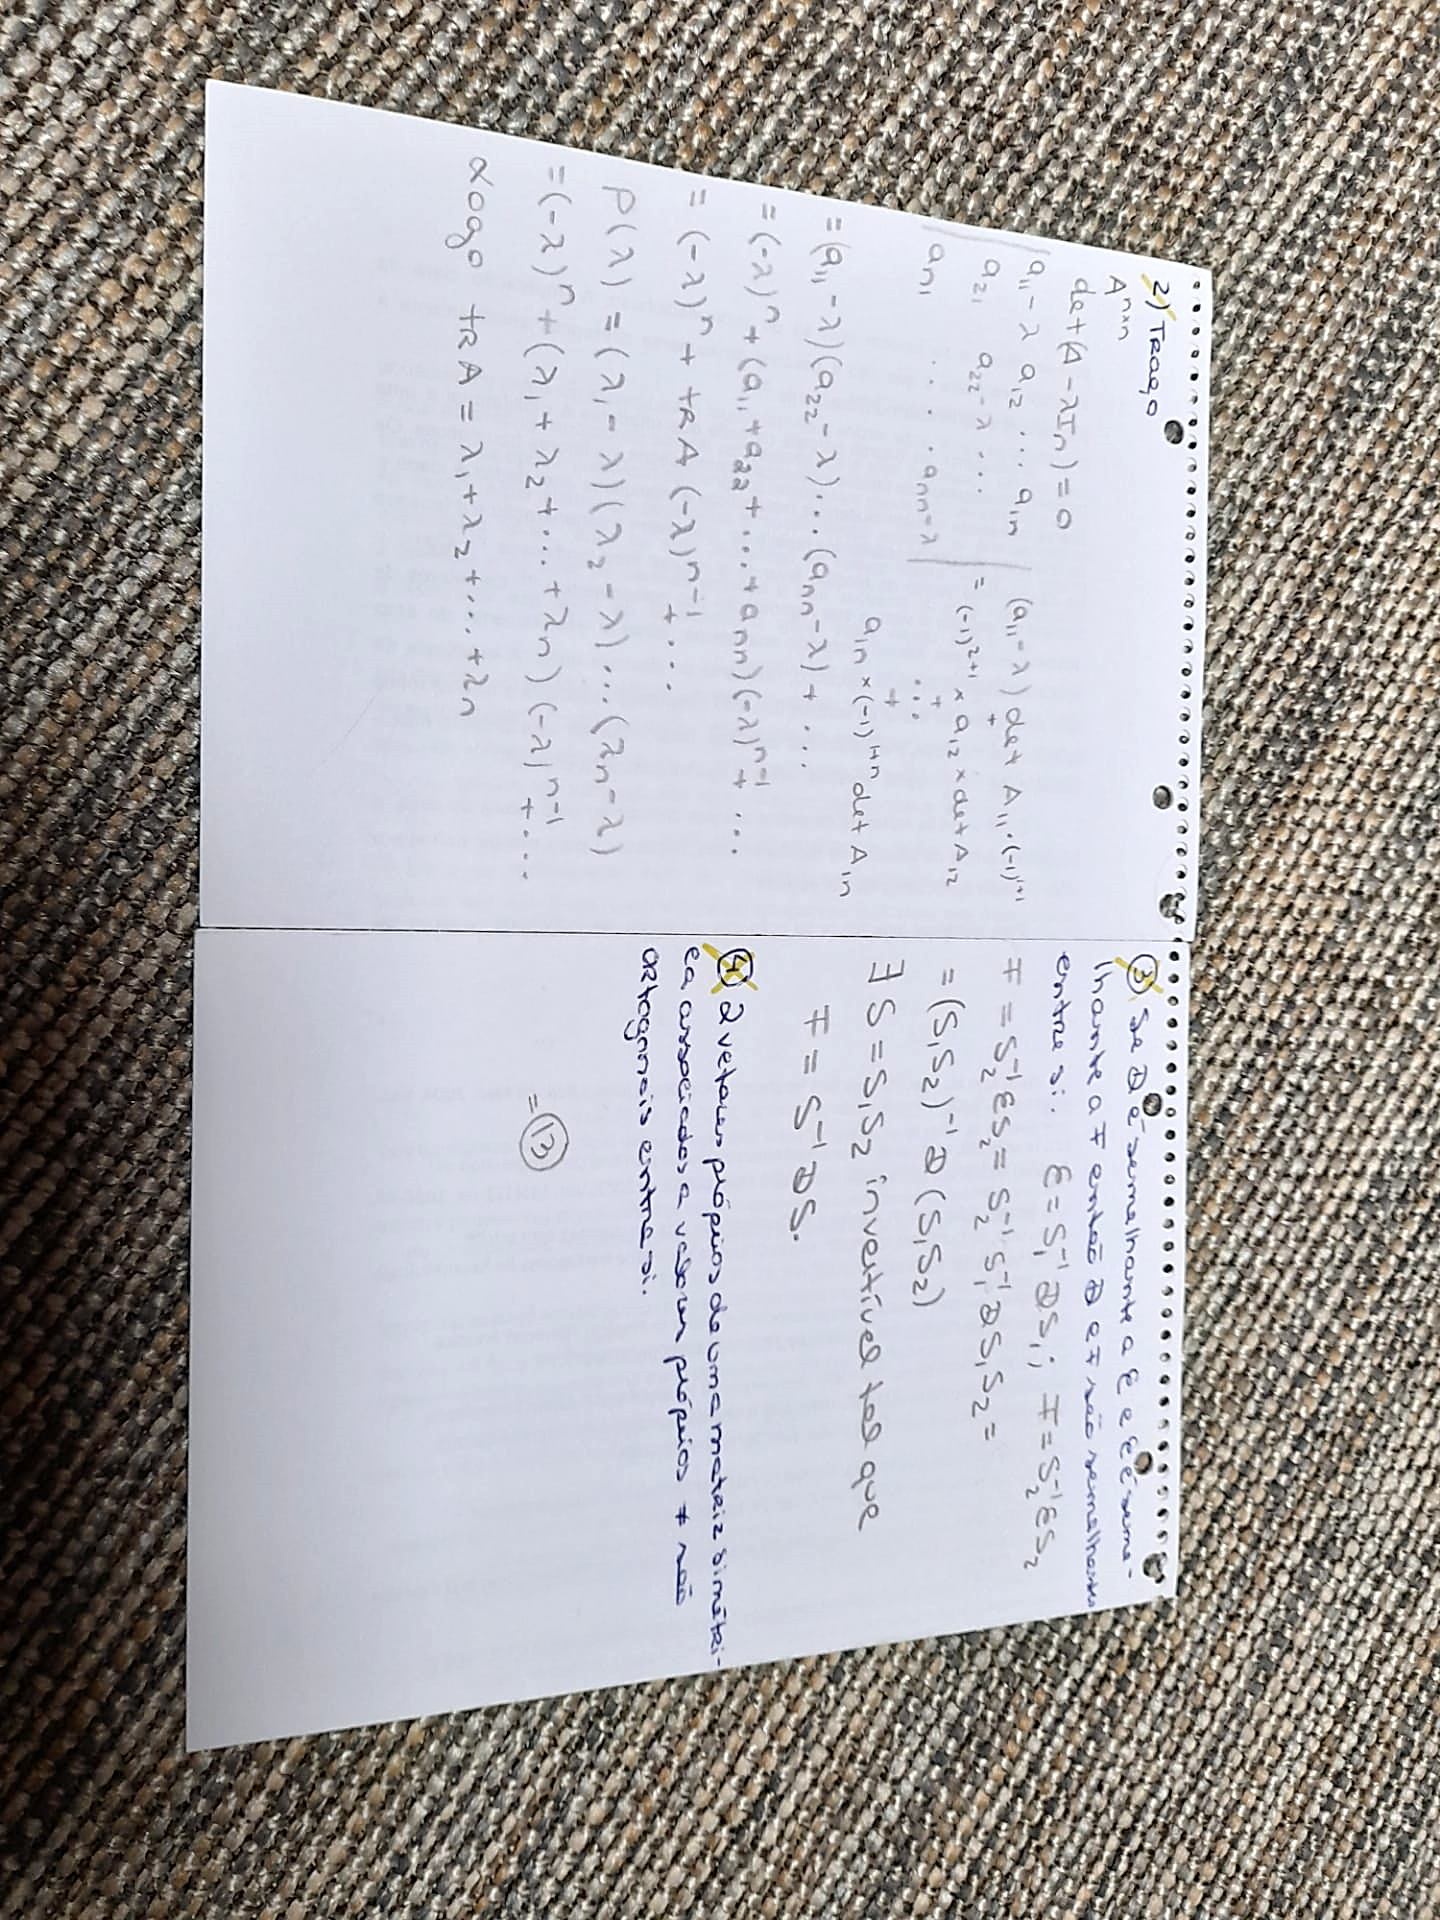 2) TRaço
A^{n×n}
det(A - λI_n) = 0
| a_{11} - λ a_{12} ... a_{1n} |
| a_{21} a_{22} - λ ... |
| a_{n1} . . . a_{nn} - λ | =
(a_{11} - λ) det A_{11} . (-1)^{1+1}
+
(-1)^{2+1} × a_{12} × det A_{12}
+
...
+
a_{1n} × (-1)^{1+n} det A_{1n}
= (a_{11} - λ)(a_{22} - λ)...(a_{nn} - λ) + ...
= (-λ)^n + (a_{11} + a_{22} + ... + a_{nn})(-λ)^{n-1} + ...
= (-λ)^n + tRA (-λ)^{n-1} + ...
P(λ) = (λ_1 - λ)(λ_2 - λ)...(λ_n - λ)
= (-λ)^n + (λ_1 + λ_2 + ... + λ_n)(-λ)^{n-1} + ...
Logo tRA = λ_1 + λ_2 + ... + λ_n
③ Se D é semelhante a E e E é seme-
lhante a F então D e F são semelhantes
entre si. E = S_1^{-1} D S_1; F = S_2^{-1} E S_2
F = S_2^{-1} E S_2 = S_2^{-1} S_1^{-1} D S_1 S_2 =
= (S_1 S_2)^{-1} D (S_1 S_2)
∃ S = S_1 S_2 invertível tal que
F = S^{-1} D S.
④ 2 vetores próprios de uma matriz simétri-
ca associados a valores próprios ≠ são
ortogonais entre si.
= ⑬